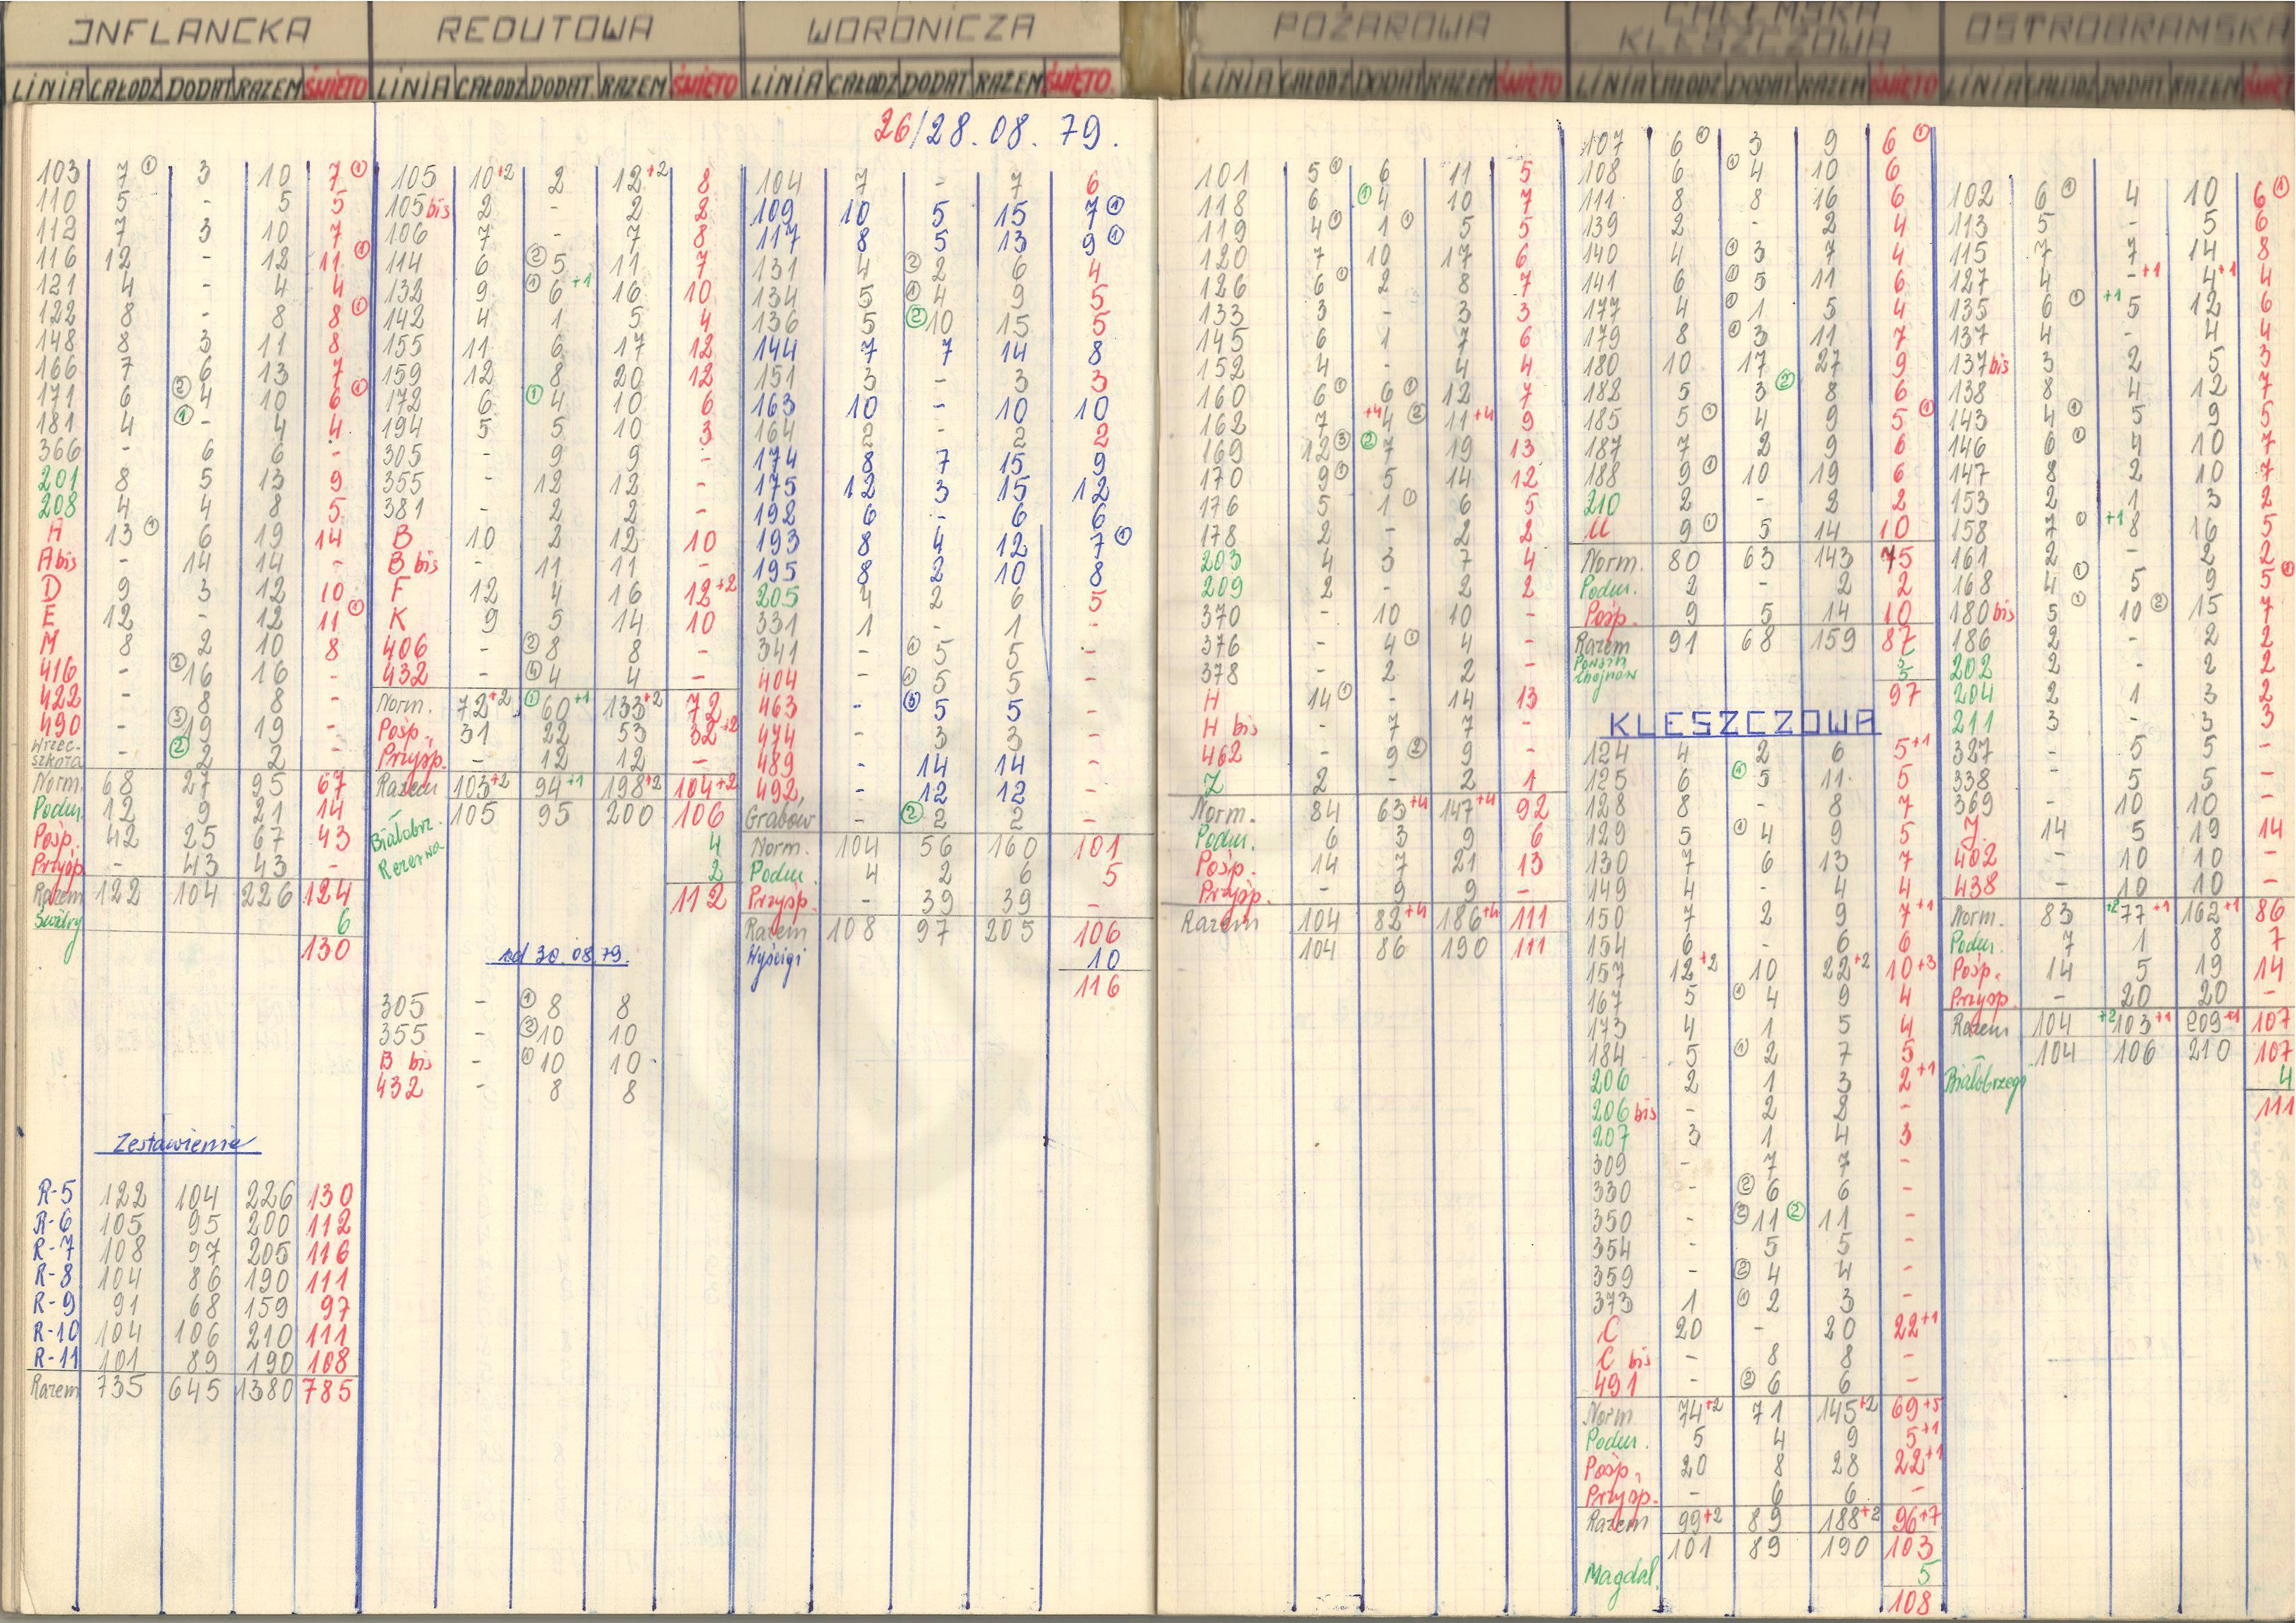 INFLANCKA
LINIA CAŁODZ DODAT RAZEM ŚWIĘTO
103 7 ① 3 10 7 ①
110 5 - 5 5
112 7 3 10 7
116 12 - 12 11 ①
121 4 - 4 4
122 8 - 8 8 ①
148 8 3 11 8
166 7 6 13 7
171 6 ② 4 10 6 ①
181 4 ① - 4 4
366 - 6 6 -
201 8 5 13 9
208 4 4 8 5
A 13 ① 6 19 14
A bis - 14 14 -
D 9 3 12 10
E 12 - 12 11 ①
M 8 2 10 8
416 - ② 16 16 -
422 - 8 8 -
490 - ③ 19 19 -
Wrzec. szkoła - ② 2 2 -
Norm. 68 27 95 67
Podm. 12 9 21 14
Posp. 42 25 67 43
Przysp. - 43 43 -
Razem 122 104 226 124
Swidry 6
130
Zestawienie
R-5 122 104 226 130
R-6 105 95 200 112
R-7 108 97 205 116
R-8 104 86 190 111
R-9 91 68 159 97
R-10 104 106 210 111
R-11 101 89 190 108
Razem 735 645 1380 785
REDUTOWA
LINIA CAŁODZ DODAT. RAZEM ŚWIĘTO
105 10+2 2 12+2 8
105 bis 2 - 2 2
106 7 - 7 8
114 6 ② 5 11 7
132 9 ① 6+1 16 10
142 4 1 5 4
155 11 6 17 12
159 12 8 20 12
172 6 ① 4 10 6
194 5 5 10 3
305 - 9 9 -
355 - 12 12 -
381 - 2 2 -
B 10 2 12 10
B bis - 11 11 -
F 12 4 16 12+2
K 9 5 14 10
406 - ② 8 8 -
432 - ④ 4 4 -
Norm. 72+2 ① 60+1 133+2 72
Posp. 31 22 53 32+2
Przysp. - 12 12 -
Razem 103+2 94+1 198+2 104+2
105 95 200 106
Białobrz. 4
Rezerwa 2
112
od 30.08.79.
305 - ① 8 8
355 - ② 10 10
B bis - ① 10 10
432 - 8 8
WORONICZA
LINIA CAŁODZ DODAT RAZEM ŚWIĘTO.
26/28.08.79.
104 7 - 7 6
109 10 5 15 7 ①
117 8 5 13 9 ①
131 4 ② 2 6 4
134 5 ① 4 9 5
136 5 ② 10 15 5
144 7 7 14 8
151 3 - 3 3
163 10 - 10 10
164 2 - 2 2
174 8 7 15 9
175 12 3 15 12
192 6 - 6 6
193 8 4 12 7 ①
195 8 2 10 8
205 4 2 6 5
331 1 - 1 -
341 - ① 5 5 -
404 - ① 5 5 -
463 - ⑤ 5 5 -
474 - 3 3 -
489 - 14 14 -
492 - 12 12 -
Grabów - ② 2 2 -
Norm. 104 56 160 101
Podm. 4 2 6 5
Przysp. - 39 39 -
Razem 108 97 205 106
Wyścigi 10
116
POŻAROWA
LINIA CAŁODZ DODAT RAZEM ŚWIĘTO
101 5 ① 6 11 5
118 6 ① 4 10 7
119 4 ① 1 ① 5 5
120 7 10 17 6
126 6 ① 2 8 7
133 3 - 3 3
145 6 1 7 6
152 4 - 4 4
160 6 ① 6 ① 12 7
162 7 +4 4 ② 11+4 9
169 12 ③ ② 7 19 13
170 9 ① 5 14 12
176 5 1 ① 6 5
178 2 - 2 2
203 4 3 7 4
209 2 - 2 2
370 - 10 10 -
376 - 4 ① 4 -
378 - 2 2 -
H 14 ① - 14 13
H bis - 7 7 -
462 - 9 ② 9 -
Z 2 - 2 1
Norm. 84 63+4 147+4 92
Podm. 6 3 9 6
Posp. 14 7 21 13
Przysp. - 9 9 -
Razem 104 82+4 186+4 111
104 86 190 111
CHEŁMSKA
KLESZCZOWA
LINIA CAŁODZ DODAT RAZEM ŚWIĘTO
107 6 ① 3 9 6 ①
108 6 ① 4 10 6
111 8 8 16 6
139 2 - 2 4
140 4 ① 3 7 4
141 6 ① 5 11 6
177 4 ① 1 5 4
179 8 ① 3 11 7
180 10 17 27 9
182 5 3 ② 8 6
185 5 ① 4 9 5 ①
187 7 2 9 6
188 9 ① 10 19 6
210 2 - 2 2
U 9 ① 5 14 10
Norm. 80 63 143 75
Podm. 2 - 2 2
Posp. 9 5 14 10
Razem 91 68 159 87
97
KLESZCZOWA
124 4 2 6 5+1
125 6 ① 5 11 5
128 8 - 8 7
129 5 ① 4 9 5
130 7 6 13 7
149 4 - 4 4
150 7 2 9 7+1
154 6 - 6 6
157 12+2 10 22+2 10+3
167 5 ① 4 9 4
173 4 1 5 4
184 5 ① 2 7 5
206 2 1 3 2+1
206 bis - 2 2 -
207 3 1 4 3
309 - 7 7 -
330 - ② 6 6 -
350 - ② 11 ② 11 -
354 - 5 5 -
359 - ② 4 4 -
373 1 ① 2 3 -
C 20 - 20 22+1
C bis - 8 8 -
491 - ② 6 6 -
Norm 74+2 71 145+2 69+5
Podm. 5 4 9 5+1
Posp. 20 8 28 22+1
Przysp. - 6 6 -
Razem 99+2 89 188+2 96+7
101 89 190 103
Magdal. 5
108
OSTROBRAMSKA
LINIA CAŁODZ DODAT RAZEM ŚWIĘTO
102 6 ① 4 10 6 ①
113 5 - 5 6
115 7 7 14 8
127 4 -+1 4+1 4
135 6 ① +1 5 12 6
137 4 - 4 4
137 bis 3 2 5 3
138 8 4 12 7
143 4 ① 5 9 5
146 6 ① 4 10 7
147 8 2 10 7
153 2 1 3 2
158 7 ① +1 8 16 5
161 2 - 2 2
168 4 ① 5 9 5 ①
180 bis 5 ① 10 ② 15 7
186 2 - 2 2
202 2 - 2 2
204 2 1 3 2
211 3 - 3 3
327 - 5 5 -
338 - 5 5 -
369 - 10 10 -
J 14 5 19 14
402 - 10 10 -
438 - 10 10 -
Norm. 83 +2 77+1 162+1 86
Podm. 7 1 8 7
Posp. 14 5 19 14
Przysp. - 20 20 -
Razem 104 +2 103+1 209+1 107
104 106 210 107
Białobrzegi 4
111